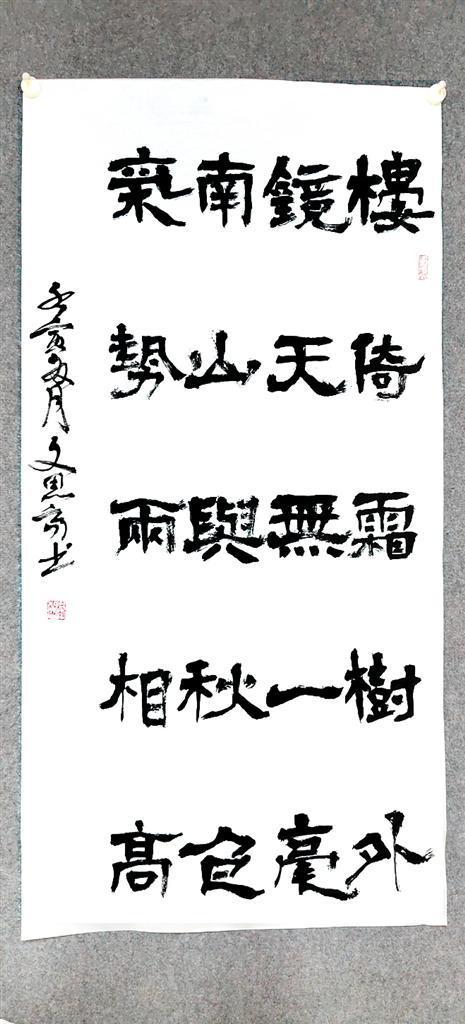 樓倚霜樹外
鏡天無一毫
南山與秋色
氣勢兩相高
亥月文思书